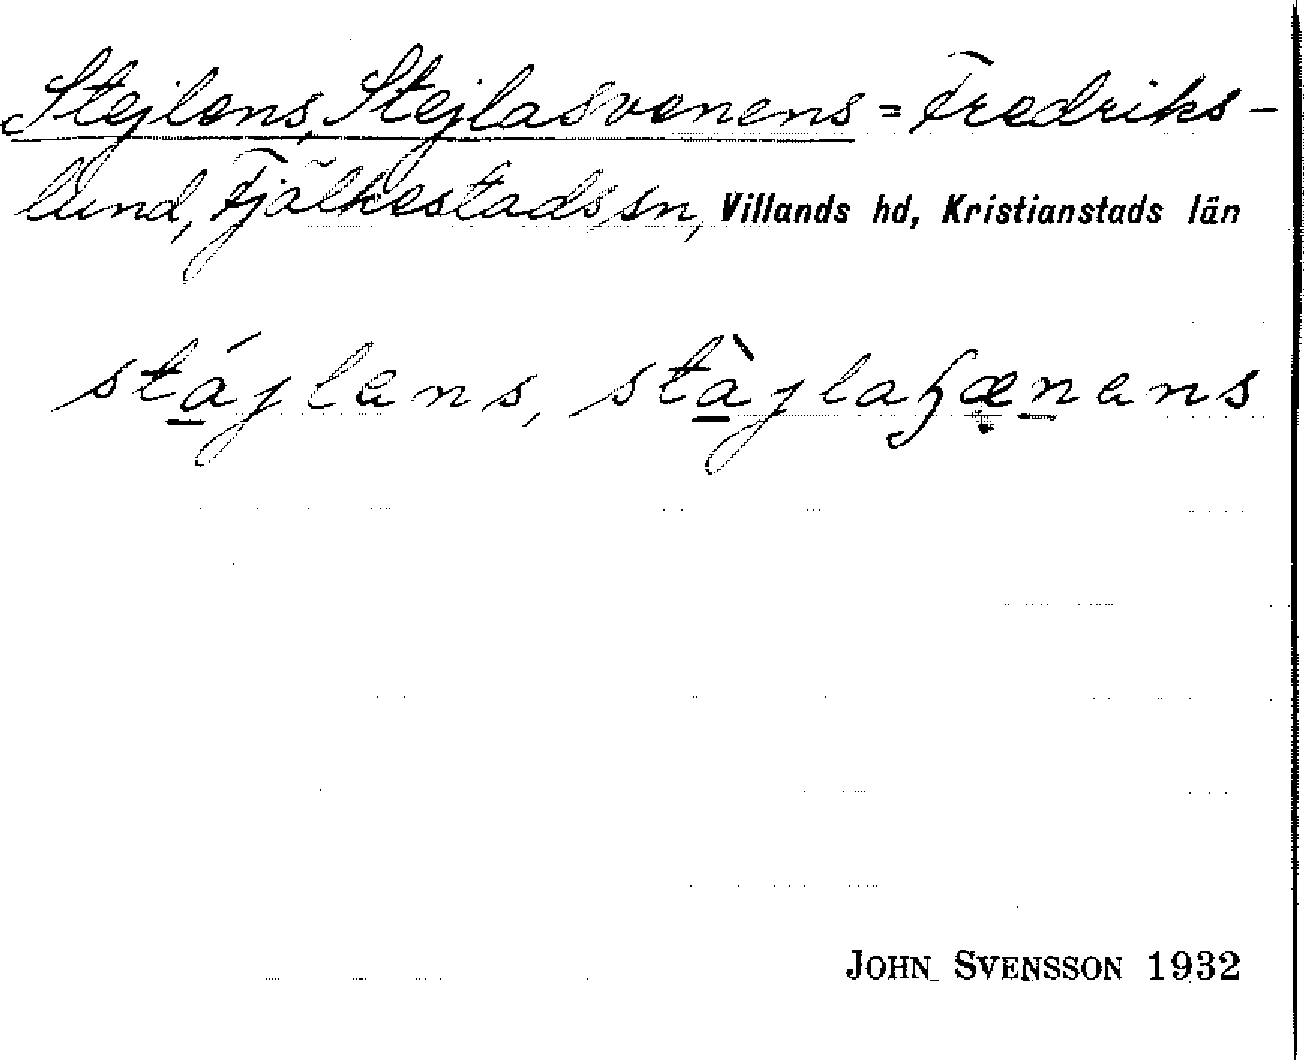 Stejlens, Stejlasvenens = Fredriks-
lund, Fjälkestads sn, Villands hd, Kristianstads län
stájlens,
JOHN SVENSSON 1932